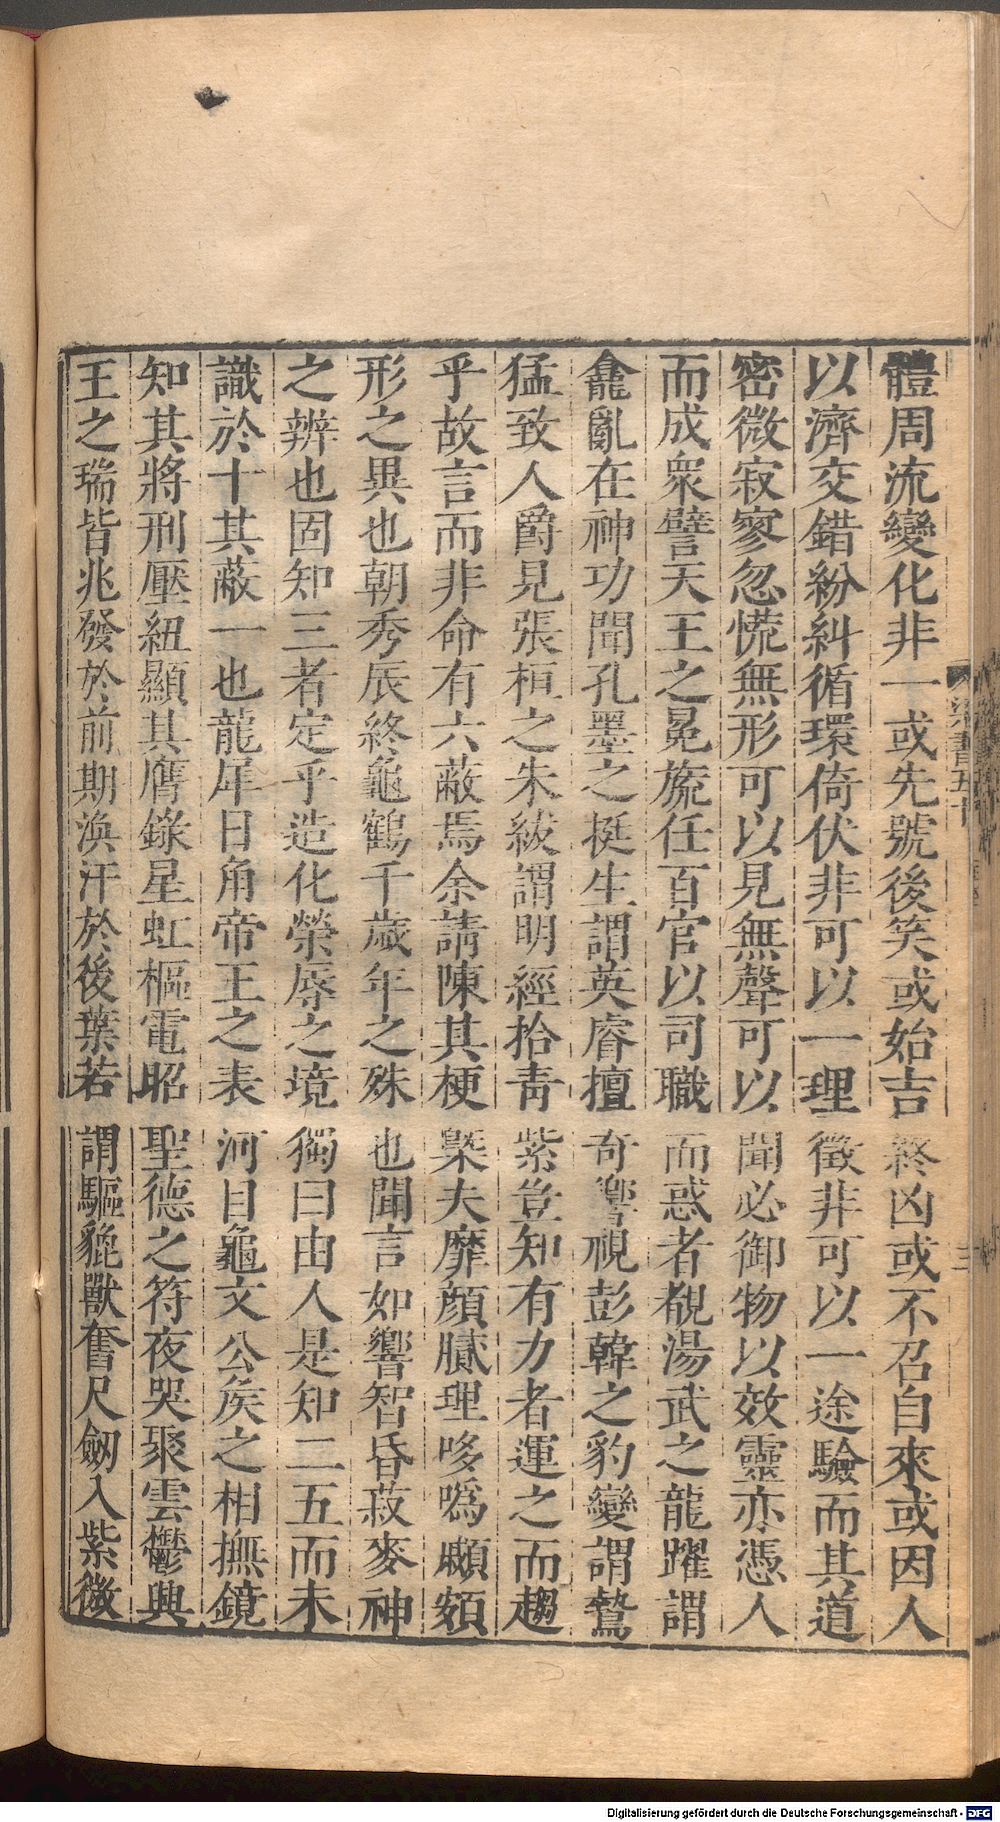 體周流變化非一或先號後笑或始吉終凶或不召自來或因人
以濟交錯紛糾循環倚伏非可以一理徵非可以一途驗而其道
密微寂寥忽慌無形可以見無聲可以聞必御物以效靈亦憑人
而成衆譬天王之冕旒任百官以司職而惑者覩湯武之龍躍謂
龕亂在神功聞孔墨之挺生謂英睿擅奇響視彭韓之豹變謂鷙
猛致人爵見張桓之朱紱謂明經拾青紫豈知有力者運之而趨
乎故言而非命有六蔽焉余請陳其梗槩夫靡顏膩理哆噅顣頞
形之異也朝秀辰終龜鶴千歲年之殊也聞言如響智昏菽麥神
之辨也固知三者定乎造化榮辱之境獨曰由人是知二五而未
識於十其蔽一也龍犀日角帝王之表河目龜文公侯之相撫鏡
知其將刑壓紐顯其膺錄星虹樞電昭聖德之符夜哭聚雲鬱興
王之瑞皆兆發於前期渙汗於後葉若謂驅貔獸奮尺劒入紫微
梁書五十
三
Digitalisierung gefördert durch die Deutsche Forschungsgemeinschaft - DFG